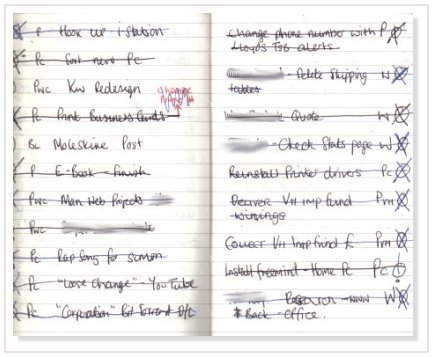 P Hook up iStation
Pc Sort new Pc
Pwc Kw Redesign
Pc Print Business Cards
BL Moleskine Post
P E-Book - finish
Pwc Man Web Projects
Pwc
Pc Rap Song for
Pc "Loose Change" - YouTube
Pc "Corporation" Bit Torrent D/L
Change phone number with P
Lloyds TSB alerts
- Delete Shipping W
tables
Quote W
- Check Stats page W
Reinstall Printer drivers Pc
Deliver VH Imp fund PVH
winnings
Collect VH Imp fund £ PVH
Install freemind - Home Pc Pc
Research - www W
Back - Office.